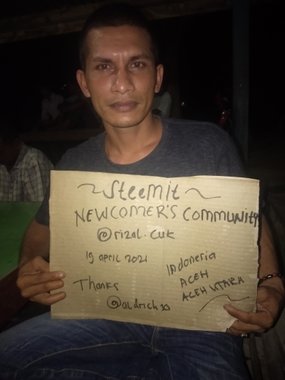 ~Steemit~
NEWCOMER'S COMMUNITY
@rizal.cut
19 april 2021
Indonesia
ACEH
ACEH UTARA
Thanks
@oldrich33